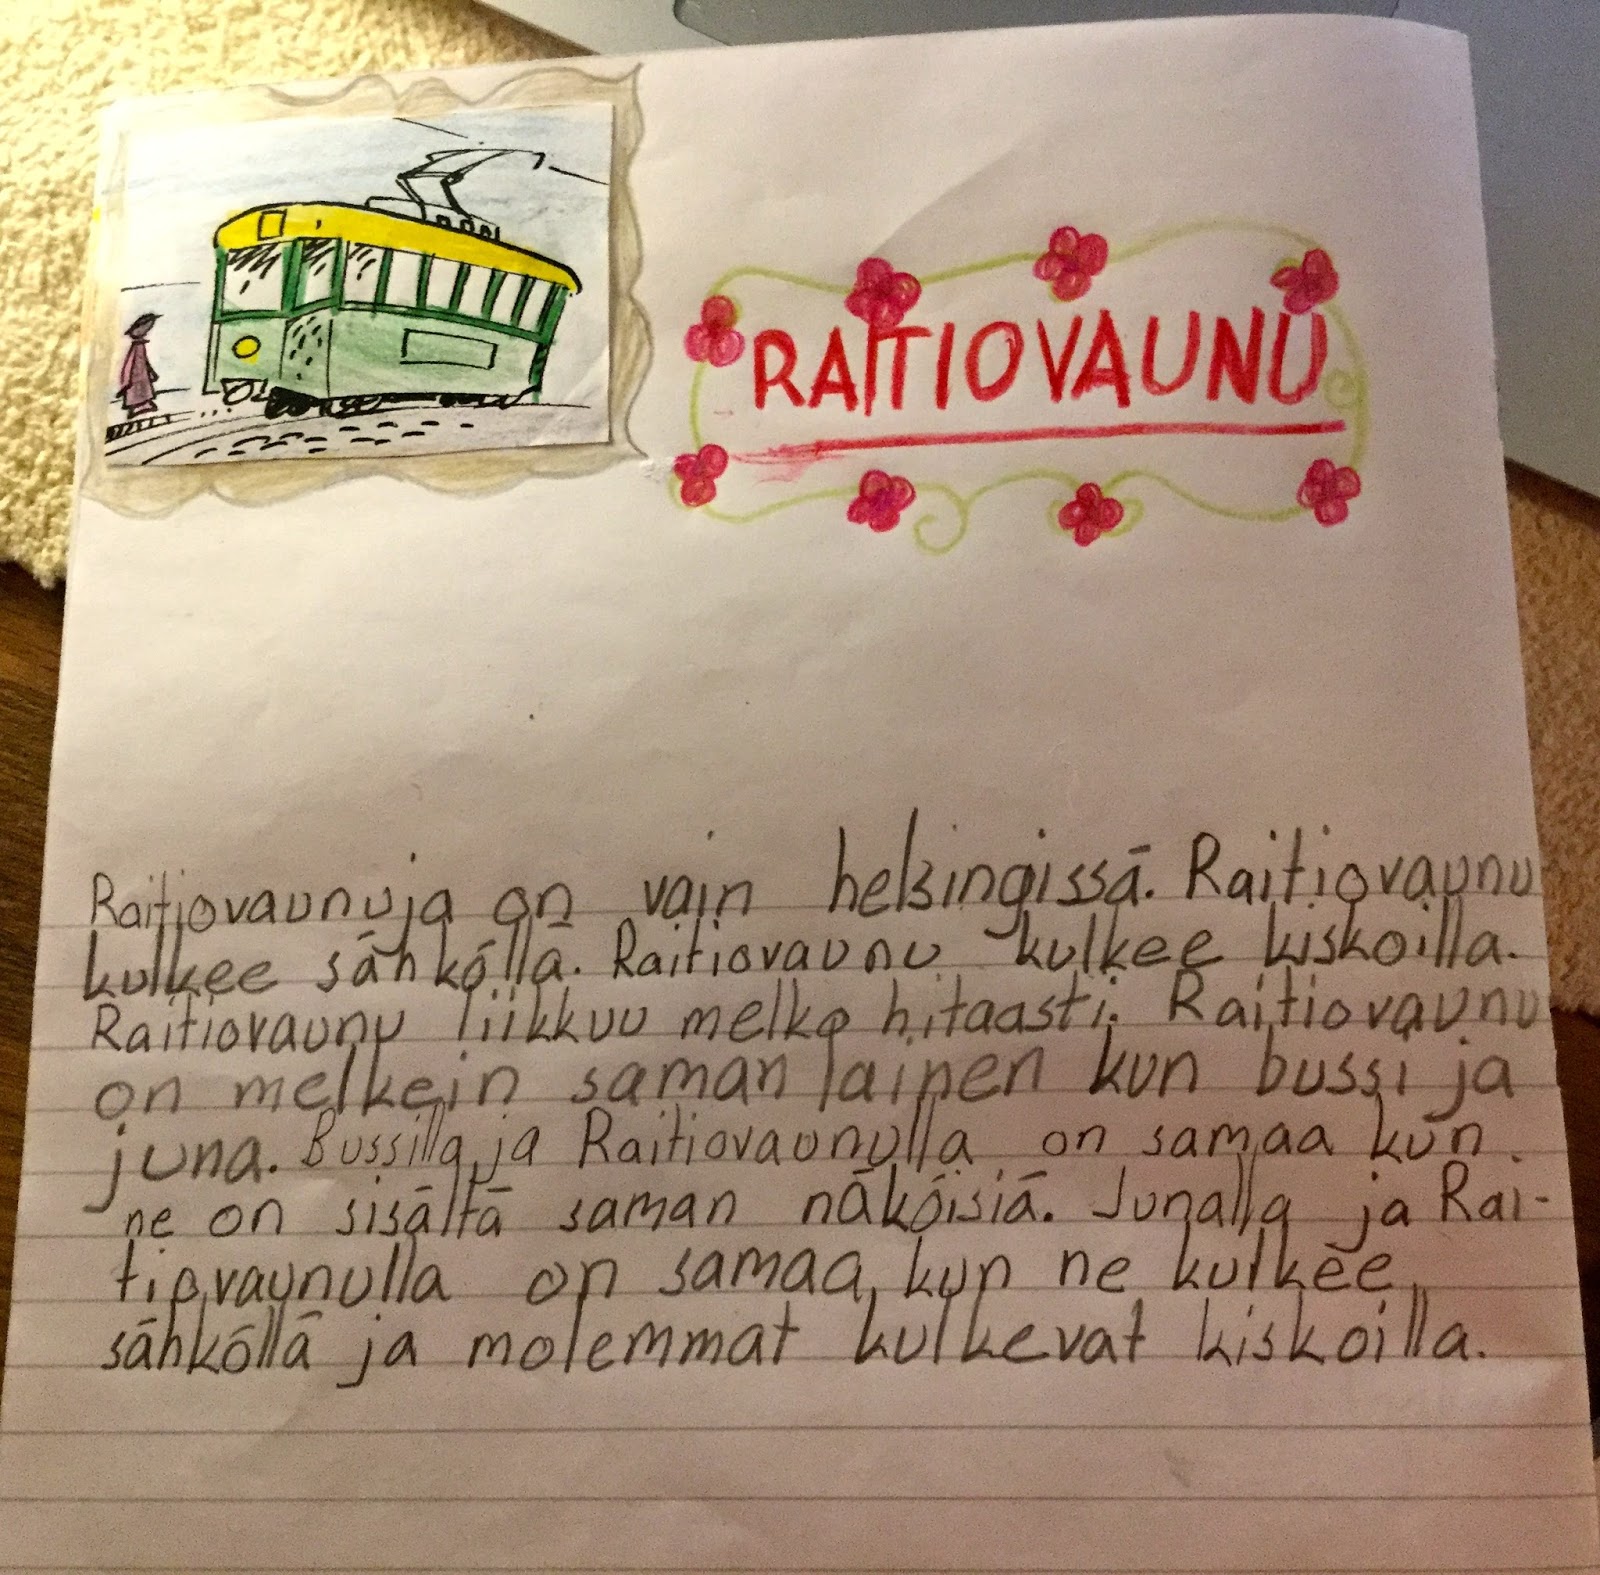 RAITIOVAUNU
Raitiovaunuja on vain helsingissä. Raitiovaunu
kulkee sähköllä. Raitiovaunu kulkee kiskoilla.
Raitiovaunu liikkuu melko hitaasti. Raitiovaunu
on melkein saman lainen kun bussi ja
juna. Bussilla ja Raitiovaunulla on samaa kun
ne on sisältä saman näköisiä. Junalla ja Rai-
tiovaunulla on samaa, kun ne kulkee
sähköllä ja molemmat kulkevat kiskoilla.